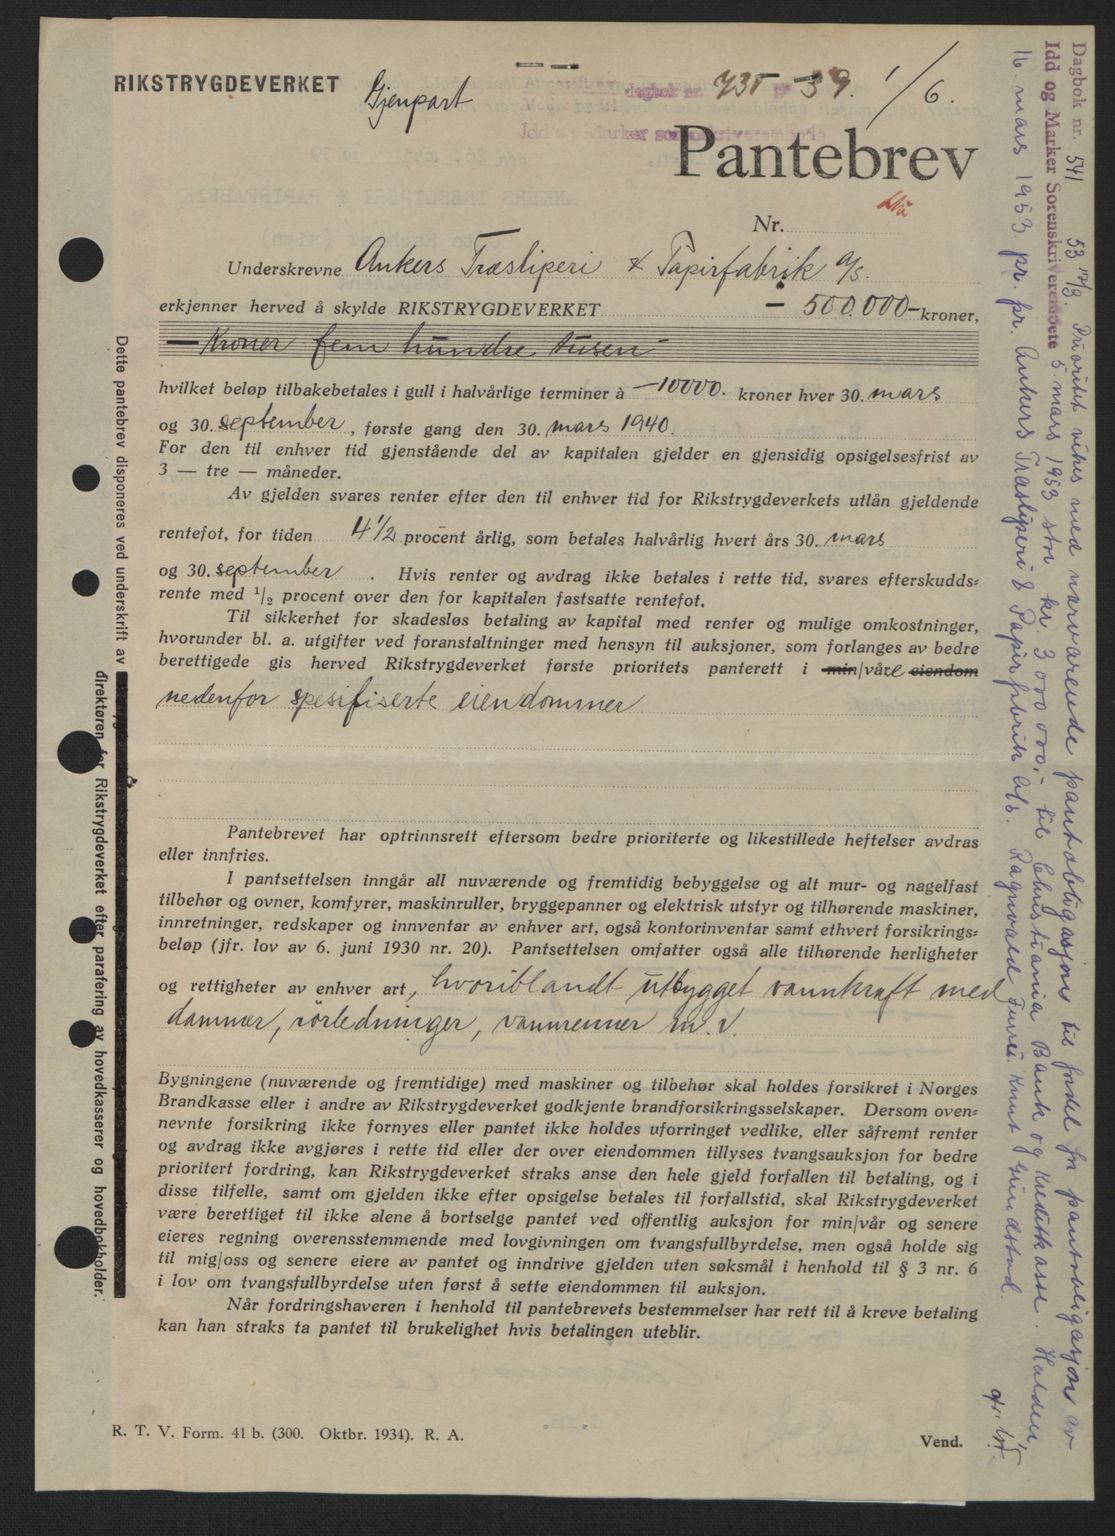 RIKSTRYGDEVERKET
Gjenpart
dagbok nr. 735 - 39. 1/6.
Idd og Marker sorenskriverembede
Pantebrev
Nr.
Underskrevne Ankers Træsliperi & Papirfabrik a/s.
erkjenner herved å skylde RIKSTRYGDEVERKET - 500.000 - kroner,
- Kroner fem hundre tusen -
hvilket beløp tilbakebetales i gull i halvårlige terminer à - 10000. kroner hver 30. mars
og 30. september, første gang den 30. mars 1940.
For den til enhver tid gjenstående del av kapitalen gjelder en gjensidig opsigelsesfrist av
3 — tre — måneder.
Av gjelden svares renter efter den til enhver tid for Rikstrygdeverkets utlån gjeldende
rentefot, for tiden 4 1/2 procent årlig, som betales halvårlig hvert års 30. mars
og 30. september . Hvis renter og avdrag ikke betales i rette tid, svares efterskudds=
rente med 1/2 procent over den for kapitalen fastsatte rentefot.
Til sikkerhet for skadesløs betaling av kapital med renter og mulige omkostninger,
hvorunder bl. a. utgifter ved foranstaltninger med hensyn til auksjoner, som forlanges av bedre
berettigede gis herved Rikstrygdeverket første prioritets panterett i min/våre eiendom
nedenfor spesifiserte eiendommer
Pantebrevet har optrinnsrett eftersom bedre prioriterte og likestillede heftelser avdras
eller innfries.
I pantsettelsen inngår all nuværende og fremtidig bebyggelse og alt mur- og nagelfast
tilbehør og ovner, komfyrer, maskinruller, bryggepanner og elektrisk utstyr og tilhørende maskiner,
innretninger, redskaper og innventar av enhver art, også kontorinventar samt ethvert forsikrings=
beløp (jfr. lov av 6. juni 1930 nr. 20). Pantsettelsen omfatter også alle tilhørende herligheter
og rettigheter av enhver art, hvoriblandt utbygget vannkraft med
dammer, rörledninger, vannrenner m.v.
Bygningene (nuværende og fremtidige) med maskiner og tilbehør skal holdes forsikret i Norges
Brandkasse eller i andre av Rikstrygdeverket godkjente brandforsikringsselskaper. Dersom oven=
nevnte forsikring ikke fornyes eller pantet ikke holdes uforringet vedlike, eller såfremt renter
og avdrag ikke avgjøres i rette tid eller der over eiendommen tillyses tvangsauksjon for bedre
prioritert fordring, kan Rikstrygdeverket straks anse den hele gjeld forfallen til betaling, og i
disse tilfelle, samt om gjelden ikke efter opsigelse betales til forfallstid, skal Rikstrygdeverket
være berettiget til ikke alene å bortselge pantet ved offentlig auksjon for min/vår og senere
eieres regning overensstemmende med lovgivningen om tvangsfullbyrdelse, men også holde sig
til mig/oss og senere eiere av pantet og inndrive gjelden uten søksmål i henhold til § 3 nr. 6
i lov om tvangsfullbyrdelse uten først å sette eiendommen til auksjon.
Når fordringshaveren i henhold til pantebrevets bestemmelser har rett til å kreve betaling
kan han straks ta pantet til brukelighet hvis betalingen uteblir.
R. T. V. Form. 41 b. (300. Oktbr. 1934). R. A.
Vend.
Dette pantebrev disponeres ved underskrift av
direktøren for Rikstrygdeverket efter parafering av hovedkasserer og hovedbokholder.
Dagbok nr. 541 53 17/3. Prioritet vikes med nærværende pantobligasjon til fordel for pantobligasjon av
Idd og Marker Sorenskriverembete 5. mars 1953 stor kr. 3 000 000,- til Christiania Bank og Kreditkasse. Halden,
16. mars 1953 pr. pr. Ankers Træsliperi & Papirfabrik A/S. Ragnvald Furei. Knut Grindstad.